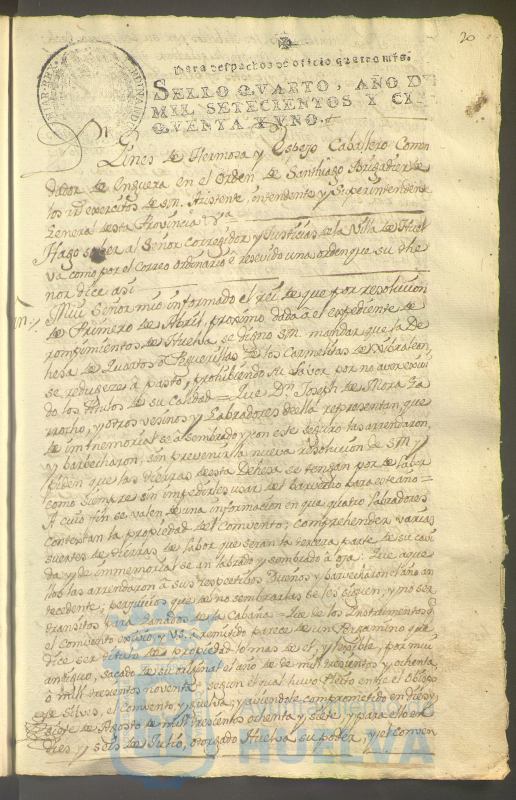 20
Para despachos de oficio quatro mrs.
SELLO QVARTO, AÑO DE
MIL SETECIENTOS Y CI-
QVENTA Y VNO.
Gines de Hermosa y Espejo Caballero Comen
dador de Enguera en el Orden de Santhiago Brigadier de
los Rs exercitos de S.M. Asistente, intendente y Superintendente
General desta Provincia
Hago saver al Señor Corregidor y Justicias de la Villa de Huel
va como por el Correo ordinario e resevido una orden que su the
nor dice asi
Mui Señor mio informado el rei de que por resolucion
de Primero de Abril proximo dada a el expediente de
rompimientos de Huelva se digno S.M. mandar que la De
hesa de Quartos ô Higuerillas de los Carmelitas de Xibraleon,
se redugese a pasto, prohibiendo su lavor por no aver exivi
do los titulos de su calidad = Que Dn Joseph de Mora Ga
rrocho, y otros vesinos y Labradores della representan, que
de immemorial se â sembrado y con este seguro las arrendaron,
y barbecharon, sin prevenir la nueva resolucion de S.M. y
Piden que las tierras desta Dehesa se tengan por de labor
como siempre sin impedirles usar del barvecho para este año =
A cuio fin se valen de una informacion en que quatro labradores
contestan la propiedad del Convento; comprehender varias
suertes de tierras de labor que seran la tersera parte de su cavi
da y de immemorial se an labrado y sembrado â oja: Que aque
llos las arrendaron a sus respectibos Dueños y barvecharon el año an
tecedente; perjuicios que de no sembrarlas se les siguen, y no ser
transitos para Ganados de la Cabaña = Que de los Instrumentos q
el comvento exivio, y V.S. a remitido parece de un Pergamino que
dice ser titulo de propiedad lo mas de el, ylegible, por mui
antiguo, sacado de su original el año de de mill tresientos y ochenta,
ô mill tresientos noventa, segun el qual huvo Pleito entre el Obispo
de Silves, el Convento y Huelva; y aviendose comprometido en Dies y
siete de Agosto de mill tresientos ochenta y siete, y para ello en
Dies y seis de Julio, otorgado Huelva su poder, y el Conven
Ayuntamiento de
HUELVA